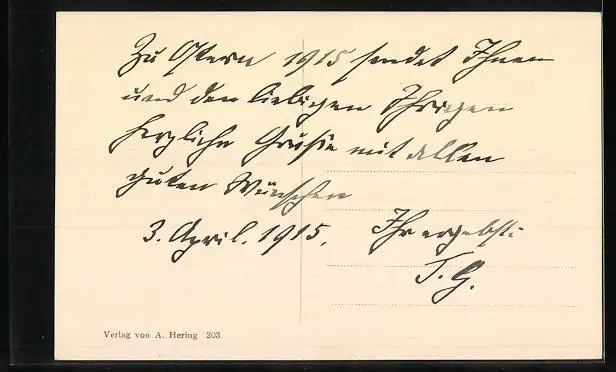 Zu Ostern 1915 sendet Ihnen
und den lieben Ihrigen
herzliche Grüße mit allen
guten Wünschen
3. April. 1915. Ihr ergebst.
T. G.
Verlag von A. Hering 203